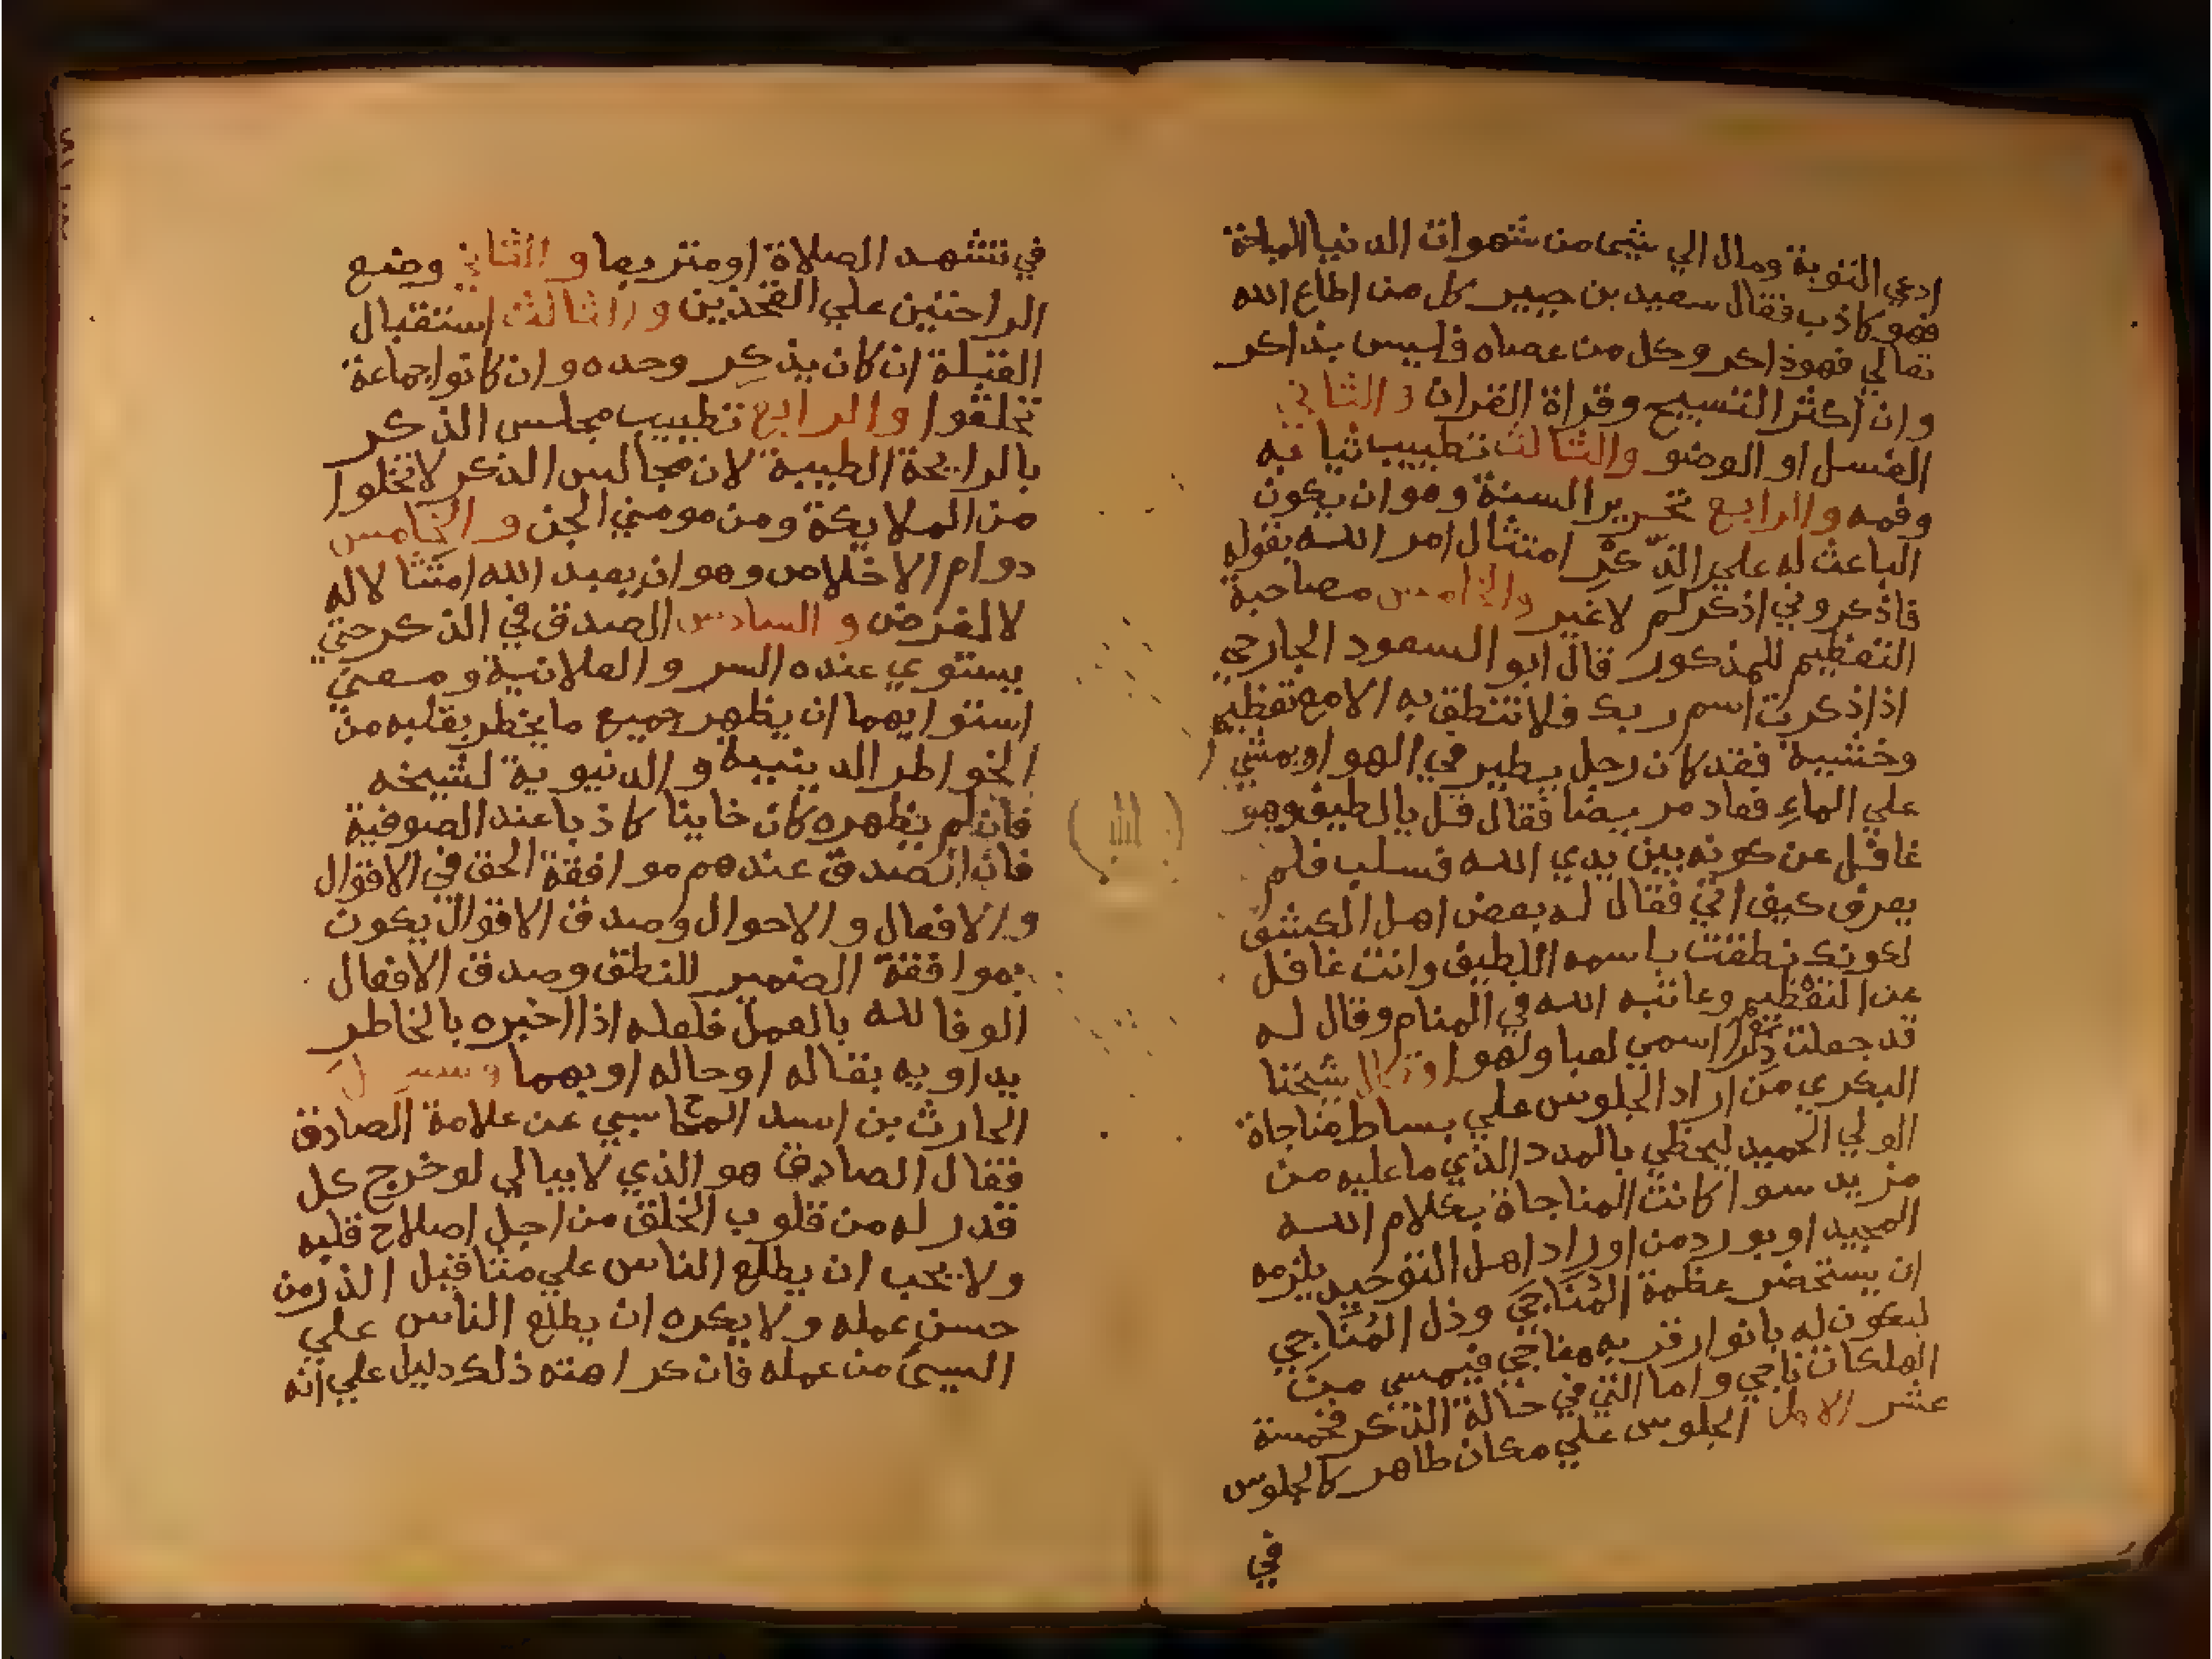 ادعي التوبة ومال الي شيء من شهوات الدنيا المباحة
فهو كاذب فقال سعيد بن جبير كل من اطاع الله
تعالي فهو ذاكر وكل من عصاه فليس بذاكر
وان اكثر التسبيح وقراة القران والثاني
الغسل او الوضو والثالث تطييب ثيابه
وفمه والرابع تحرير السنة وهو ان يكون
الباعث له علي الذكر امتثال امر الله بقوله
فاذكروني اذكركم لا غير والخامس مصاحبة
التعظيم للمذكور قال ابو السعود الجارحي
اذا ذكرت اسم ربك فلا تنطق به الا مع تعظيم
وخشية فقد كان رجل يطير في الهوا ويمشي
علي الماء فعاد مريضا فقال قل يا لطيف وهو
غافل عن كونه بين يدي الله فسلب فلم
يعرف كيف اتي فقال له بعض اهل الكشف
لكونك نطقت باسمه اللطيف وانت غافل
عن التعظيم وعاتبه الله في المنام وقال له
قد جعلت ذكر اسمي لعبا ولهوا وقال شيخنا
البكري من اراد الجلوس علي بساط مناجاة
الولي الحميد ليحظي بالمدد الذي ما عليه من
مزيد سوا كانت المناجاة بكلام الله
المجيد او بورد من اوراد اهل التوحيد يلزمه
ان يستحضر عظمة المُناجَي وذل المُناجِي
ليكون له بانوار قربه مفاجي فيمسي من
الهلكات ناجي واما التي في حالة الذكر فخمسة
عشر الاول الجلوس علي مكان طاهر كالجلوس
في
في تشهد الصلاة او متربعا والثاني وضع
الراحتين علي الفخذين والثالث استقبال
القبلة ان كان يذكر وحده وان كانوا جماعة
تحلقوا والرابع تطييب مجلس الذكر
بالرايحة الطيبة لان مجالس الذكر لا تخلوا
من الملايكة ومن مومني الجن والخامس
دوام الاخلاص وهو ان يعبد الله امتثالا له
لا لغرض والسادس الصدق في الذكر حتي
يستوي عنده السر والعلانية ومعني
استوايهما ان يظهر جميع ما يخطر بقلبه من
الخواطر الدينية والدنيوية لشيخه
فان لم يظهره كان خاينا كاذبا عند الصوفية
فان الصدق عندهم موافقة الحق في الاقوال
والافعال والاحوال وصدق الاقوال يكون
بموافقة الضمير للنطق وصدق الافعال
الوفا لله بالعمل فلعله اذا اخبره بالخاطر
يداويه بقاله او حاله او بهما وسيل
الحارث بن اسد المحاسبي عن علامة الصادق
فقال الصادق هو الذي لا يبالي لو خرج كل
قدر له من قلوب الخلق من اجل اصلاح قلبه
ولا يحب ان يطلع الناس علي مثاقيل الذر من
حسن عمله ولا يكره ان يطلع الناس علي
السيئ من عمله فان كراهته ذلك دليل علي انه